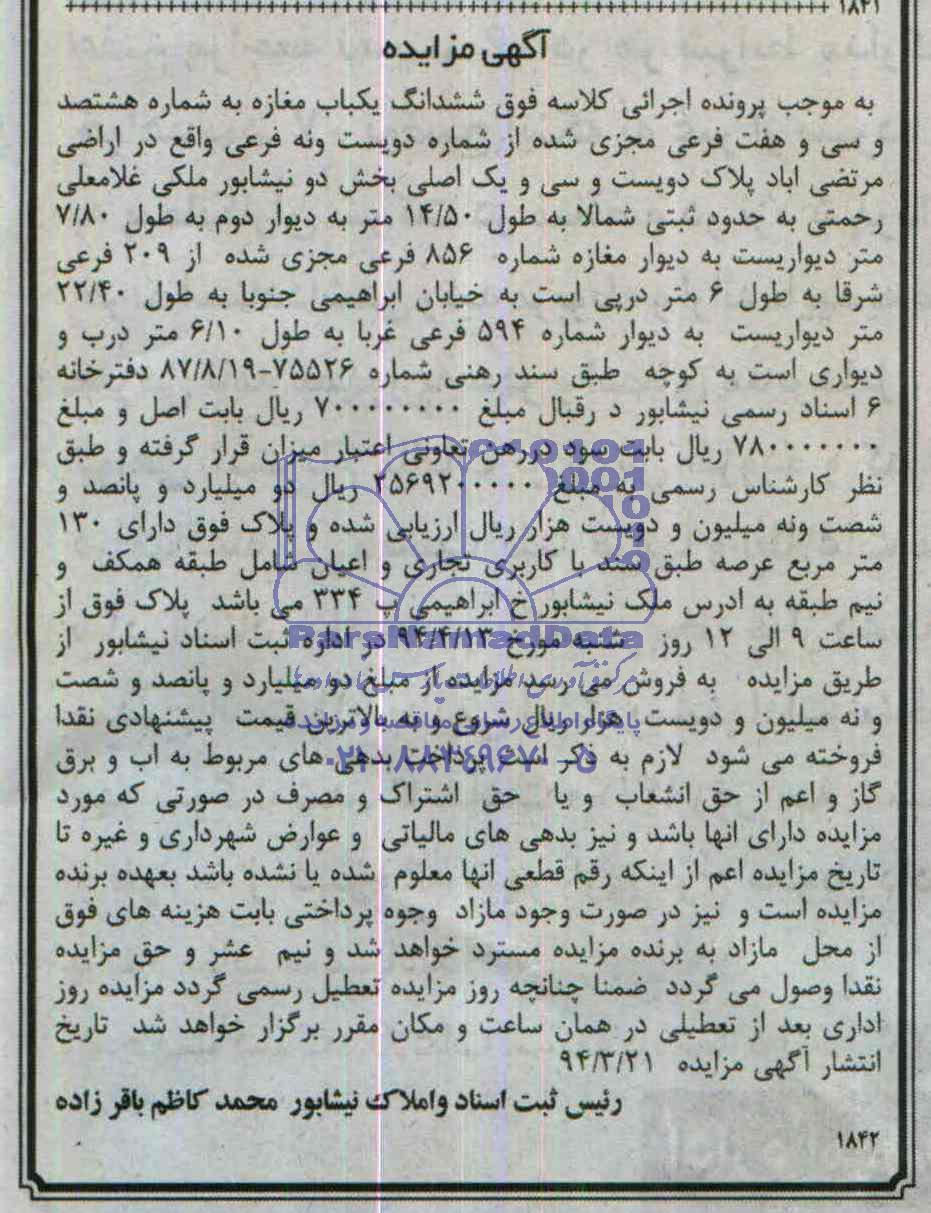 ۱۸۴۱
آگهی مزایده
به موجب پرونده اجرائی کلاسه فوق ششدانگ یکباب مغازه به شماره هشتصد
و سی و هفت فرعی مجزی شده از شماره دویست ونه فرعی واقع در اراضی
مرتضی اباد پلاک دویست و سی و یک اصلی بخش دو نیشابور ملکی غلامعلی
رحمتی به حدود ثبتی شمالا به طول ۱۴/۵۰ متر به دیوار دوم به طول ۷/۸۰
متر دیواریست به دیوار مغازه شماره ۸۵۶ فرعی مجزی شده از ۲۰۹ فرعی
شرقا به طول ۶ متر درپی است به خیابان ابراهیمی جنوبا به طول ۲۲/۴۰
متر دیواریست به دیوار شماره ۵۹۴ فرعی غربا به طول ۶/۱۰ متر درب و
دیواری است به کوچه طبق سند رهنی شماره ۷۵۵۲۶-۸۷/۸/۱۹ دفترخانه
۶ اسناد رسمی نیشابور د رقبال مبلغ ۷۰۰۰۰۰۰۰۰۰ ریال بابت اصل و مبلغ
۷۸۰۰۰۰۰۰۰ ریال بابت سود دررهن تعاونی اعتبار میزان قرار گرفته و طبق
نظر کارشناس رسمی به مبلغ ۲۵۶۹۲۰۰۰۰۰ ریال دو میلیارد و پانصد و
شصت ونه میلیون و دویست هزار ریال ارزیابی شده و پلاک فوق دارای ۱۳۰
متر مربع عرصه طبق سند با کاربری تجاری و اعیان شامل طبقه همکف و
نیم طبقه به ادرس ملک نیشابور خ ابراهیمی پ ۳۳۴ می باشد پلاک فوق از
ساعت ۹ الی ۱۲ روز شنبه مورخ ۹۴/۴/۱۳ در اداره ثبت اسناد نیشابور از
طریق مزایده به فروش می رسد مزایده از مبلغ دو میلیارد و پانصد و شصت
و نه میلیون و دویست هزار ریال شروع و به بالاترین قیمت پیشنهادی نقدا
فروخته می شود لازم به ذکر است پرداخت بدهی های مربوط به اب و برق
گاز و اعم از حق انشعاب و یا حق اشتراک و مصرف در صورتی که مورد
مزایده دارای انها باشد و نیز بدهی های مالیاتی و عوارض شهرداری و غیره تا
تاریخ مزایده اعم از اینکه رقم قطعی انها معلوم شده یا نشده باشد بعهده برنده
مزایده است و نیز در صورت وجود مازاد وجوه پرداختی بابت هزینه های فوق
از محل مازاد به برنده مزایده مسترد خواهد شد و نیم عشر و حق مزایده
نقدا وصول می گردد ضمنا چنانچه روز مزایده تعطیل رسمی گردد مزایده روز
اداری بعد از تعطیلی در همان ساعت و مکان مقرر برگزار خواهد شد تاریخ
انتشار آگهی مزایده ۹۴/۳/۲۱
رئیس ثبت اسناد واملاک نیشابور محمد کاظم باقر زاده
۱۸۴۲
ParsNamadData
۰۲۱-۸۸۳۴۹۶۷۰-۵